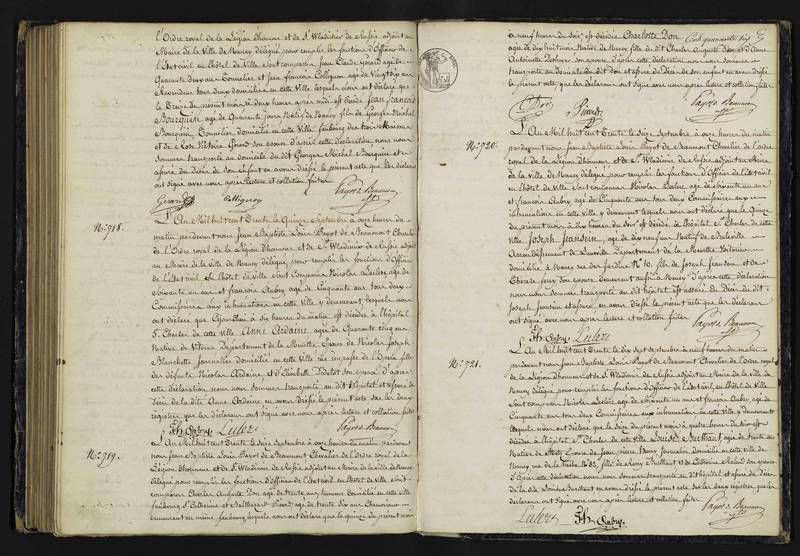 l'Ordre royal de la Légion d'honneur et de St Wladimir de Russie adjoint au
Maire de la Ville de Nancy délégué pour remplir les fonctions d'Officier de
l'Etat civil en l'hôtel de Ville sont comparus Jean Claude Gérard agé de
Quarante deux ans Tonnelier et Jean françois Collignon agé de Vingt six ans
Revendeur tous deux domiciliés en cette Ville lesquels nous ont déclaré que
le Treize du présent mois à deux heures après midi est décédé Jean francois
Bourguin agé de Quarante jours Natif de Nancy fils de Georges Michel
Bourguin, Tonnelier domicilié en cette Ville faubourg des trois Maisons
et de Rose Victoire Girard son epouse d'après cette déclaration nous nous
sommes transporté au domicile du dit Georges Michel Bourguin et
assuré du décès de son Enfant en avons dressé le présent acte que les déclarans
ont signé avec nous après lecture et collation faites
Gerard Collignon Payot de Beaumont
No. 918.
L'An Mil huit cent Trente le Quinze Septembre à onze heures du
matin pardevant nous Jean Baptiste Louis Payot de Beaumont Chevalier
de l'Ordre royal de la Légion d'honneur et de St Wladimir de Russie adjoint
au Maire de la Ville de Nancy délégué pour remplir les fonctions d'Officier
de l'Etat civil en l'hôtel de Ville sont Comparus Nicolas Leclerc agé de
Soixante un ans et françois Aubry agé de Cinquante ans tous deux
Commissaires aux inhumations en cette Ville y demeurant lesquels nous
ont déclaré que Cejourd'hui à six heures du matin est décédée à l'hôpital
St Charles de cette ville Anne Ardaine agée de Quarante cinq ans
Native de Département de la Meurthe Epouse de Nicolas Joseph
Blanchette Journalier domicilié en cette Ville rue impasse de l'Opera fille
des défunts Nicolas Ardaine et d'Elisabeth Didelot son epouse D'après
cette déclaration nous nous sommes transporté au dit hôpital et assuré du
Décès de la dite Anne Ardaine en avons dressé le présent acte sur les deux
registres que les déclarans ont signé avec nous après lecture et collation faites
Fs Aubry Leclerc Payot de Beaumont
No. 919.
L'An Mil huit cent Trente le Seize Septembre à onze heures du matin pardevant
nous Jean Baptiste Louis Payot de Beaumont Chevalier de l'Ordre royal de la
Légion d'honneur et de St Wladimir de Russie adjoint au Maire de la ville de Nancy
délégué pour remplir les fonctions d'Officier de l'Etat civil en l'hôtel de Ville sont
comparus Charles Auguste Don agé de trente ans domicilié en cette ville
faubourg Ste Catherine et Balthazard Picard agé de trente six ans
demeurant au même faubourg lesquels nous ont déclaré que le quinze du présent mois
à neuf heures du soir est décédée Charlotte Don
agée de dix huit mois Native de Nancy fille du dit Charles Auguste Don et d'Anne
Antoinette son epouse d'après cette déclaration nous nous sommes
transporté au domicile du dit Don et assuré du Décès de son enfant en avons dressé
le présent acte que les déclarans ont signé avec nous après lecture et collation faites
Don Picard Payot de Beaumont
No. 720.
L'An Mil huit cent Trente le Seize Septembre à onze heures du matin
pardevant nous Jean Baptiste Louis Payot de Beaumont Chevalier de l'ordre
royal de la Légion d'honneur et de St Wladimir de Russie adjoint au Maire
de la Ville de Nancy délégué pour remplir les fonctions d'Officier de l'Etat civil
en l'hôtel de Ville sont comparus Nicolas Leclerc agé de soixante un ans
et François Aubry agé de Cinquante ans tous deux Commissaires aux
inhumations en cette ville y demeurant lesquels nous ont déclaré que le Quinze
du présent mois à dix heures du soir est décédé à l'hôpital St Charles de cette
ville Joseph Jeansein, agé de dix neuf ans Natif de
Arrondissement de Lunéville Département de la Meurthe
domicilié à Nancy rue des Jardins No. 10. fils de Joseph Jeansein et de
son epouse demeurant aussi à Nancy D'après cette déclaration
nous nous sommes transporté au dit hôpital et assuré du Décès du dit
Joseph Jeansein en avons dressé le présent acte que les déclarans
ont signé avec nous après lecture et collation faites
Fs Aubry Leclerc Payot de Beaumont
No. 721.
L'An Mil huit cent Trente le dix sept Septembre à neuf heures du matin
pardevant nous Jean Baptiste Louis Payot de Beaumont Chevalier de l'Ordre royal
de la Légion d'honneur et de St Wladimir de Russie adjoint au Maire de la ville de
Nancy délégué pour remplir les fonctions d'Officier de l'Etat civil en l'hôtel de Ville
sont comparus Nicolas Leclerc agé de soixante un ans et françois Aubry agé de
Cinquante ans tous deux Commissaires aux inhumations en cette Ville y demeurant
lesquels nous ont déclaré que le Seize du présent mois à quatre heures du soir est
décédée à l'hôpital St Charles de cette ville Louise Berthaut, agée de trente ans
Native de Epouse de Jean pierre journalier domicilié en cette Ville de
Nancy rue No. 82, fille de Berthaut et de Catherine son epouse
D'après cette déclaration nous nous sommes transporté au dit hôpital et assuré du décès
de la dite Louise Berthaut en avons dressé le présent acte sur les deux registres que les
déclarans ont signé avec nous après lecture et collation faites
Leclerc Fs Aubry. Payot de Beaumont